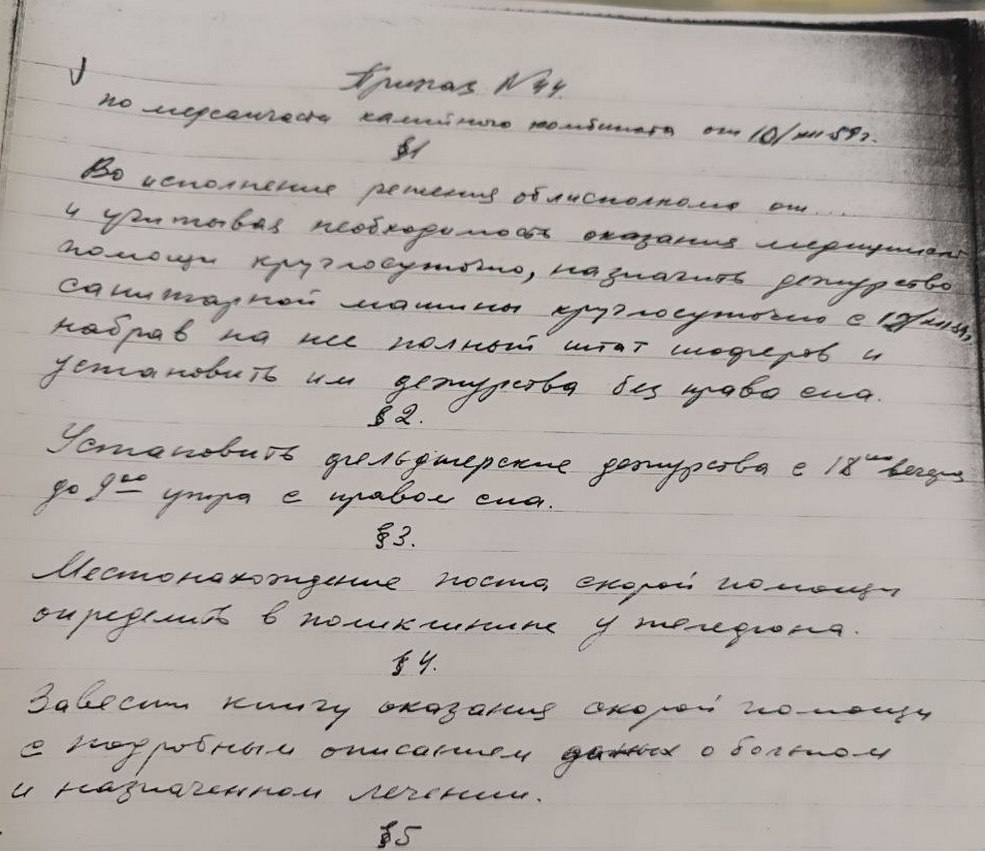 Приказ N 44.
по медсанчасти калийного комбината от 10/XII-59 г.
§1
Во исполнение решения облисполкома от...
и учитывая необходимость оказания медицинской
помощи круглосуточно, назначить дежурство
санитарной машины круглосуточно с 12/XII-59,
набрав на нее полный штат шоферов и
установить им дежурства без права сна.
§2.
Установить фельдшерские дежурства с 18 00 вечера
до 9 00 утра с правом сна.
§3.
Местонахождение поста скорой помощи
определить в поликлинике у телефона.
§4.
Завести книгу оказания скорой помощи
с подробным описанием данных о больном
и назначенном лечении.
§5